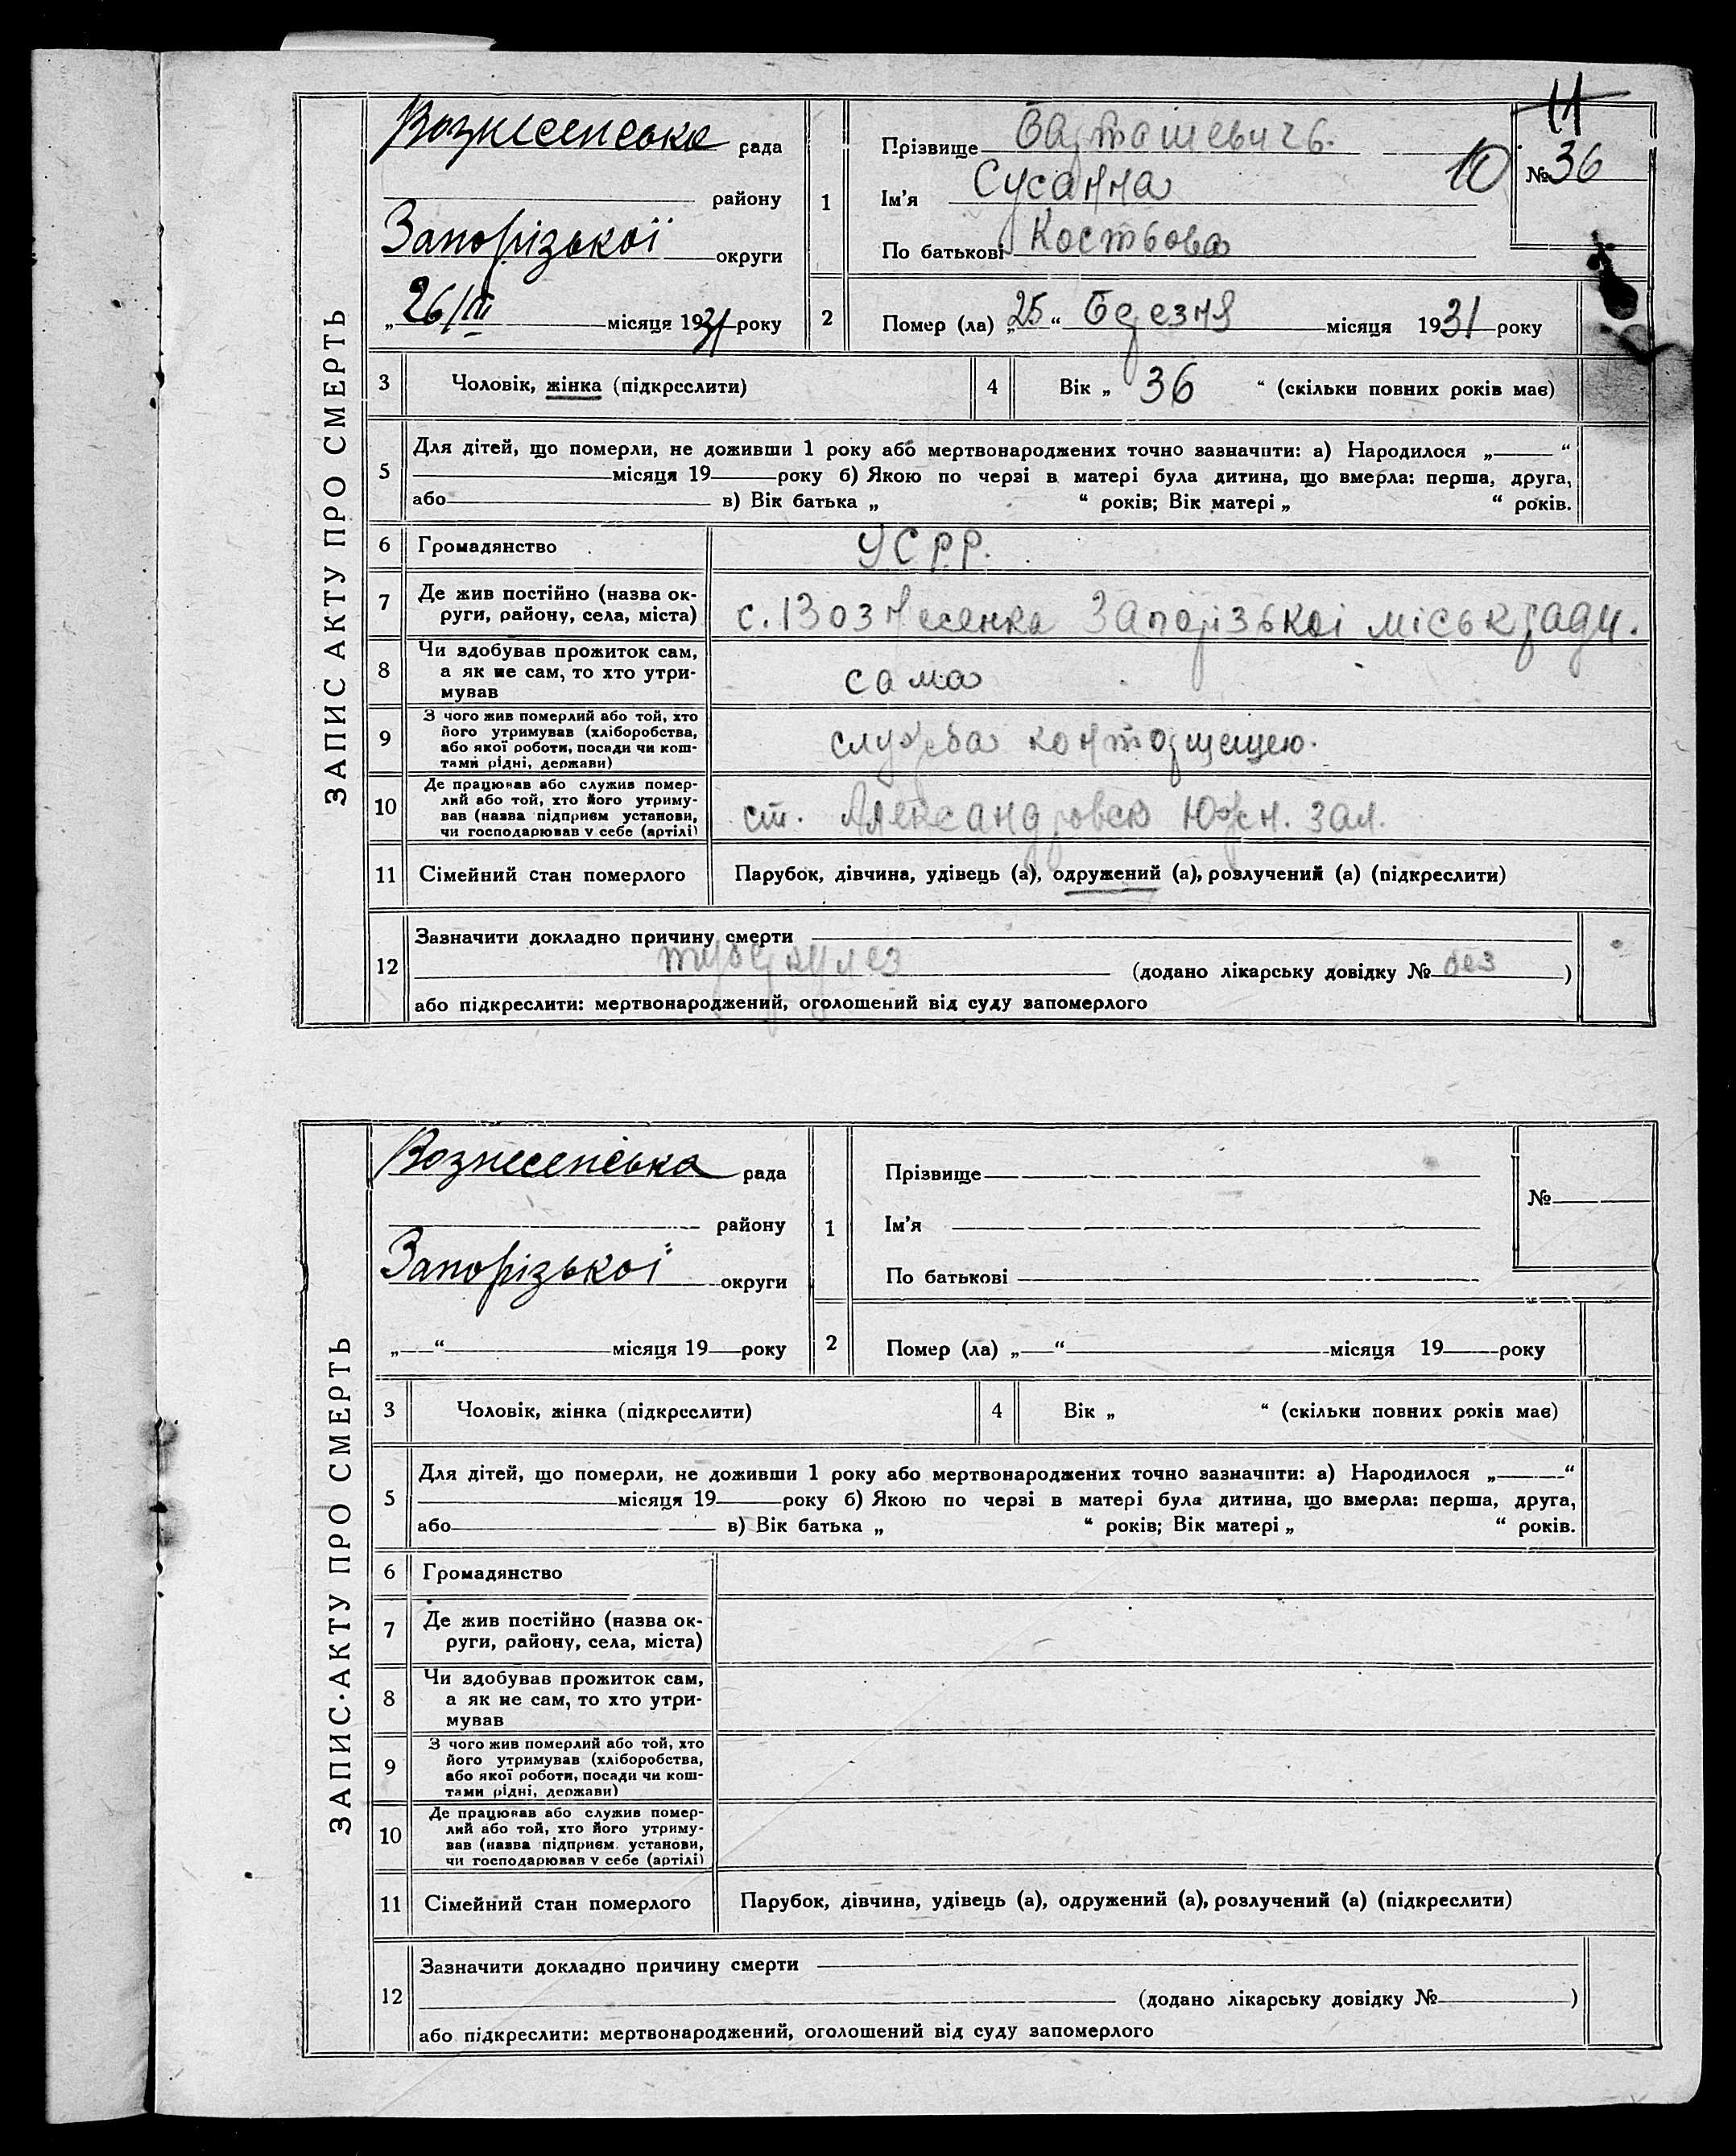 ЗАПИС АКТУ ПРО СМЕРТЬ
Вознесенська рада
району
Запорізької округи
„26/III місяця 1931 року
1
Прізвище Барташевичь.
Ім'я Сусанна
По батькові Костьова
11
10
№ 36
2
Помер (ла) „25“ Березня місяця 1931 року
3 Чоловік, жінка (підкреслити)
4 Вік „ 36 “ (скільки повних років має)
5 Для дітей, що померли, не доживши 1 року або мертвонароджених точно зазначити: а) Народилося „ “
місяця 19 року б) Якою по черзі в матері була дитина, що вмерла: перша, друга,
або в) Вік батька „ “ років; Вік матері „ “ років.
6 Громадянство УСРР.
7 Де жив постійно (назва ок-
руги, району, села, міста) с. Вознесенка Запорізькоі міськради.
8 Чи здобував прожиток сам,
а як не сам, то хто утри-
мував
сама
9 З чого жив померлий або той, хто
його утримував (хліборобства,
або якої роботи, посади чи кош-
тами рідні, держави)
служба
10 Де працював або служив помер-
лий або той, хто його утриму-
вав (назва підприєм установи,
чи господарював у себе (артілі)
ст. Александровск Южн. зал.
11 Сімейний стан померлого Парубок, дівчина, удівець (а), одружений (а), розлучений (а) (підкреслити)
12 Зазначити докладно причину смерти
туберкулез (додано лікарську довідку № без )
або підкреслити: мертвонароджений, оголошений від суду запомерлого
ЗАПИС АКТУ ПРО СМЕРТЬ
Вознесенська рада
району
Запорізької округи
„ “ місяця 19 року
1
Прізвище
Ім'я
По батькові
№
2
Помер (ла) „ “ місяця 19 року
3 Чоловік, жінка (підкреслити)
4 Вік „ “ (скільки повних років має)
5 Для дітей, що померли, не доживши 1 року або мертвонароджених точно зазначити: а) Народилося „ “
місяця 19 року б) Якою по черзі в матері була дитина, що вмерла: перша, друга,
або в) Вік батька „ “ років; Вік матері „ “ років.
6 Громадянство
7 Де жив постійно (назва ок-
руги, району, села, міста)
8 Чи здобував прожиток сам,
а як не сам, то хто утри-
мував
9 З чого жив померлий або той, хто
його утримував (хліборобства,
або якої роботи, посади чи кош-
тами рідні, держави)
10 Де працював або служив помер-
лий або той, хто його утриму-
вав (назва підприєм. установи,
чи господарював у себе (артілі)
11 Сімейний стан померлого Парубок, дівчина, удівець (а), одружений (а), розлучений (а) (підкреслити)
12 Зазначити докладно причину смерти
(додано лікарську довідку № )
або підкреслити: мертвонароджений, оголошений від суду запомерлого